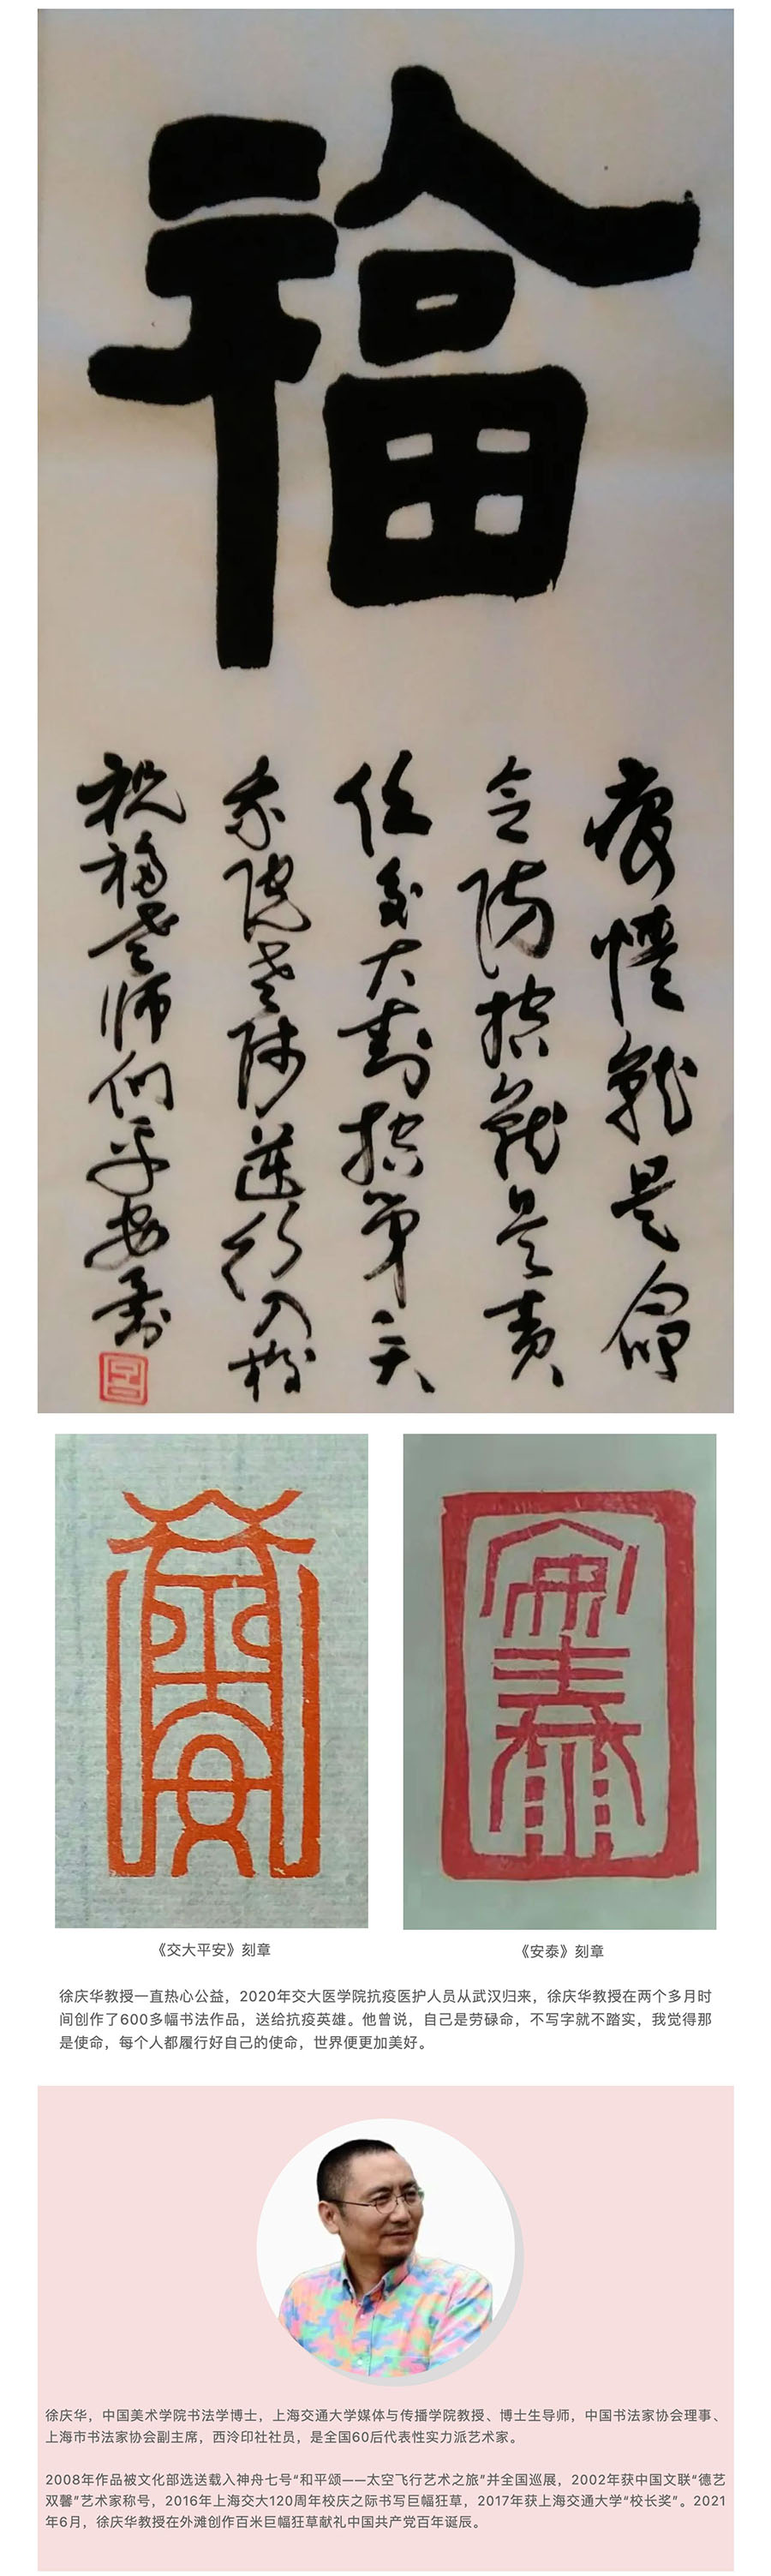 福
疫情就是命
令防控就是责
任交大封控第一天
院老师逆行入校
祝福老师们平安
《交大平安》刻章
《安泰》刻章
徐庆华教授一直热心公益，2020年交大医学院抗疫医护人员从武汉归来，徐庆华教授在两个多月时
间创作了600多幅书法作品，送给抗疫英雄。他曾说，自己是劳碌命，不写字就不踏实，我觉得那
是使命，每个人都履行好自己的使命，世界便更加美好。
徐庆华，中国美术学院书法学博士，上海交通大学媒体与传播学院教授、博士生导师，中国书法家协会理事、
上海市书法家协会副主席，西泠印社社员，是全国60后代表性实力派艺术家。
2008年作品被文化部选送载入神舟七号“和平颂——太空飞行艺术之旅”并全国巡展，2002年获中国文联“德艺
双馨”艺术家称号，2016年上海交大120周年校庆之际书写巨幅狂草，2017年获上海交通大学“校长奖”。2021
年6月，徐庆华教授在外滩创作百米巨幅狂草献礼中国共产党百年诞辰。